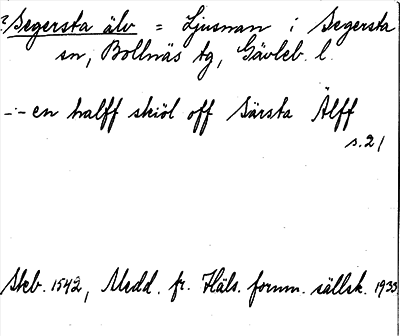 ? Segersta älv = Ljusnan i Segersta
sn, Bollnäs tg, Gävleb. l.
-:- en halff skiöl off Särsta Älff
s. 21
Skb. 1542, Medd. fr. Häls. fornm. sällsk. 1933